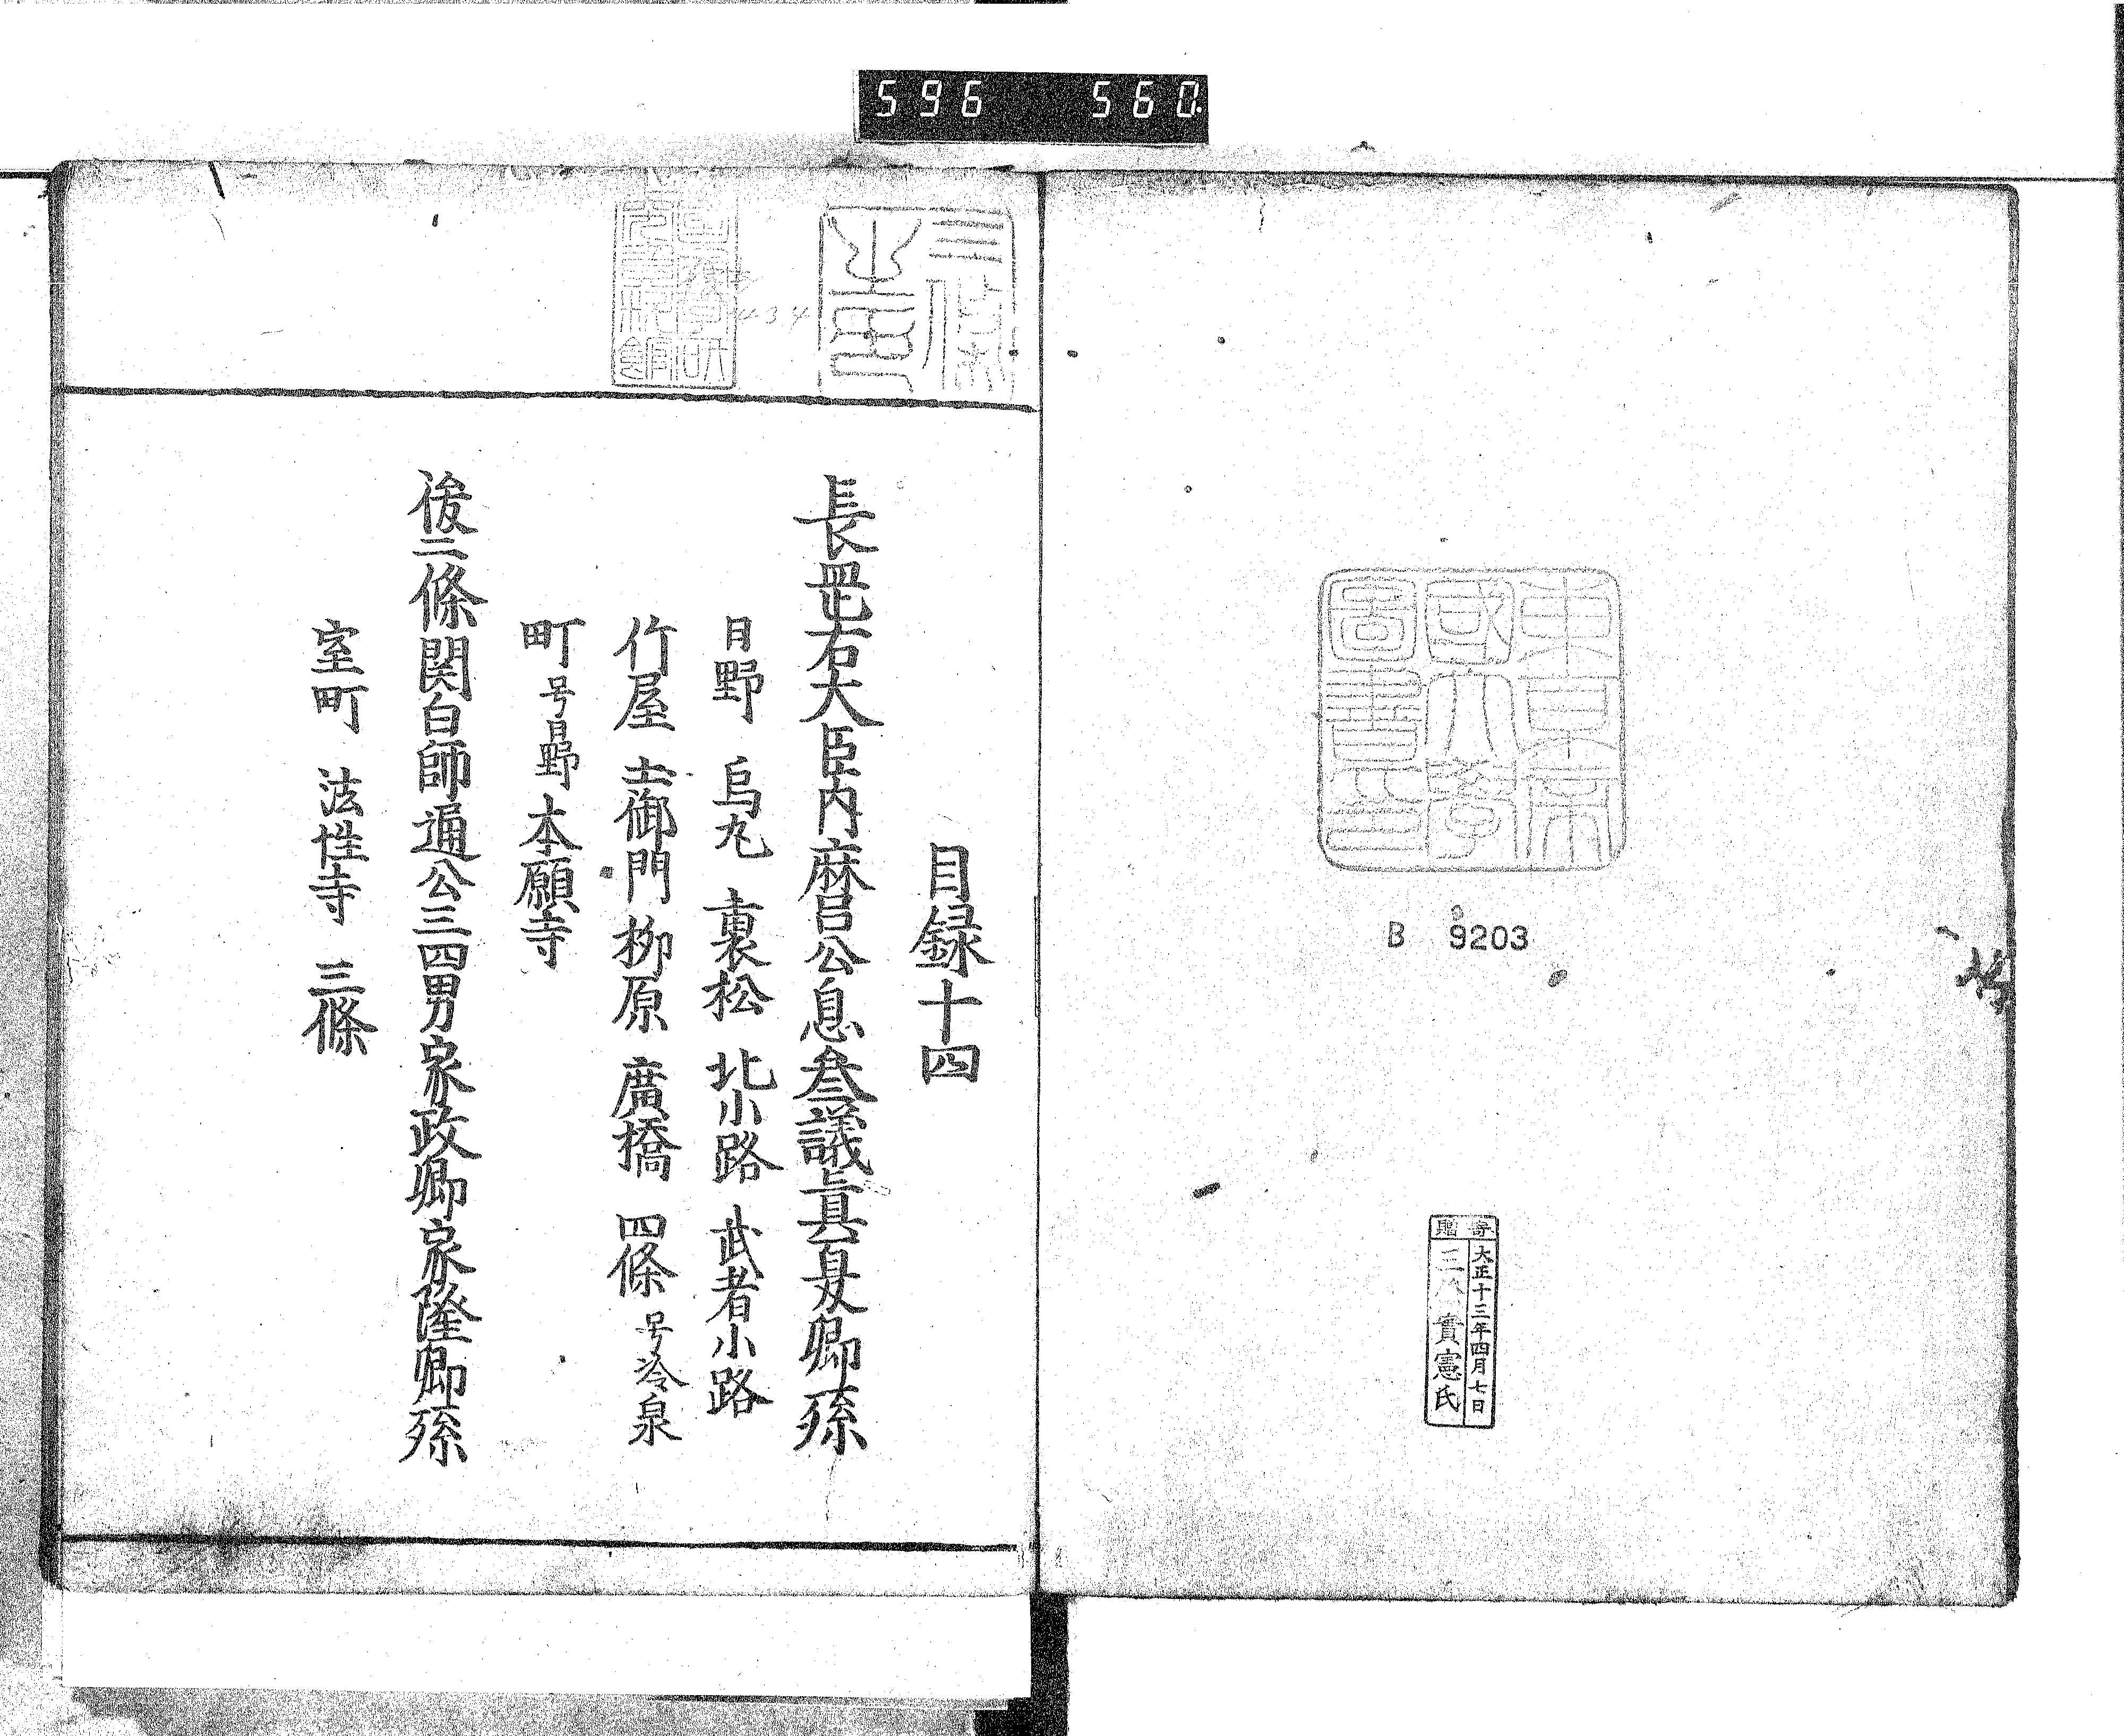 596 560
東京
帝國大學
圖書印
B 9203
寄贈
大正十三年四月七日
三八 貫憲氏
434
目録十四
長罡右大臣内麻呂公息叄議眞夏卿孫
日野 烏丸 裏松 北小路 武者小路
竹屋 土御門 栁原 廣橋 四條 号冷泉
町 号日野 本願寺
後二條関白師通公三四男家政卿家隆卿孫
室町 法性寺 三條